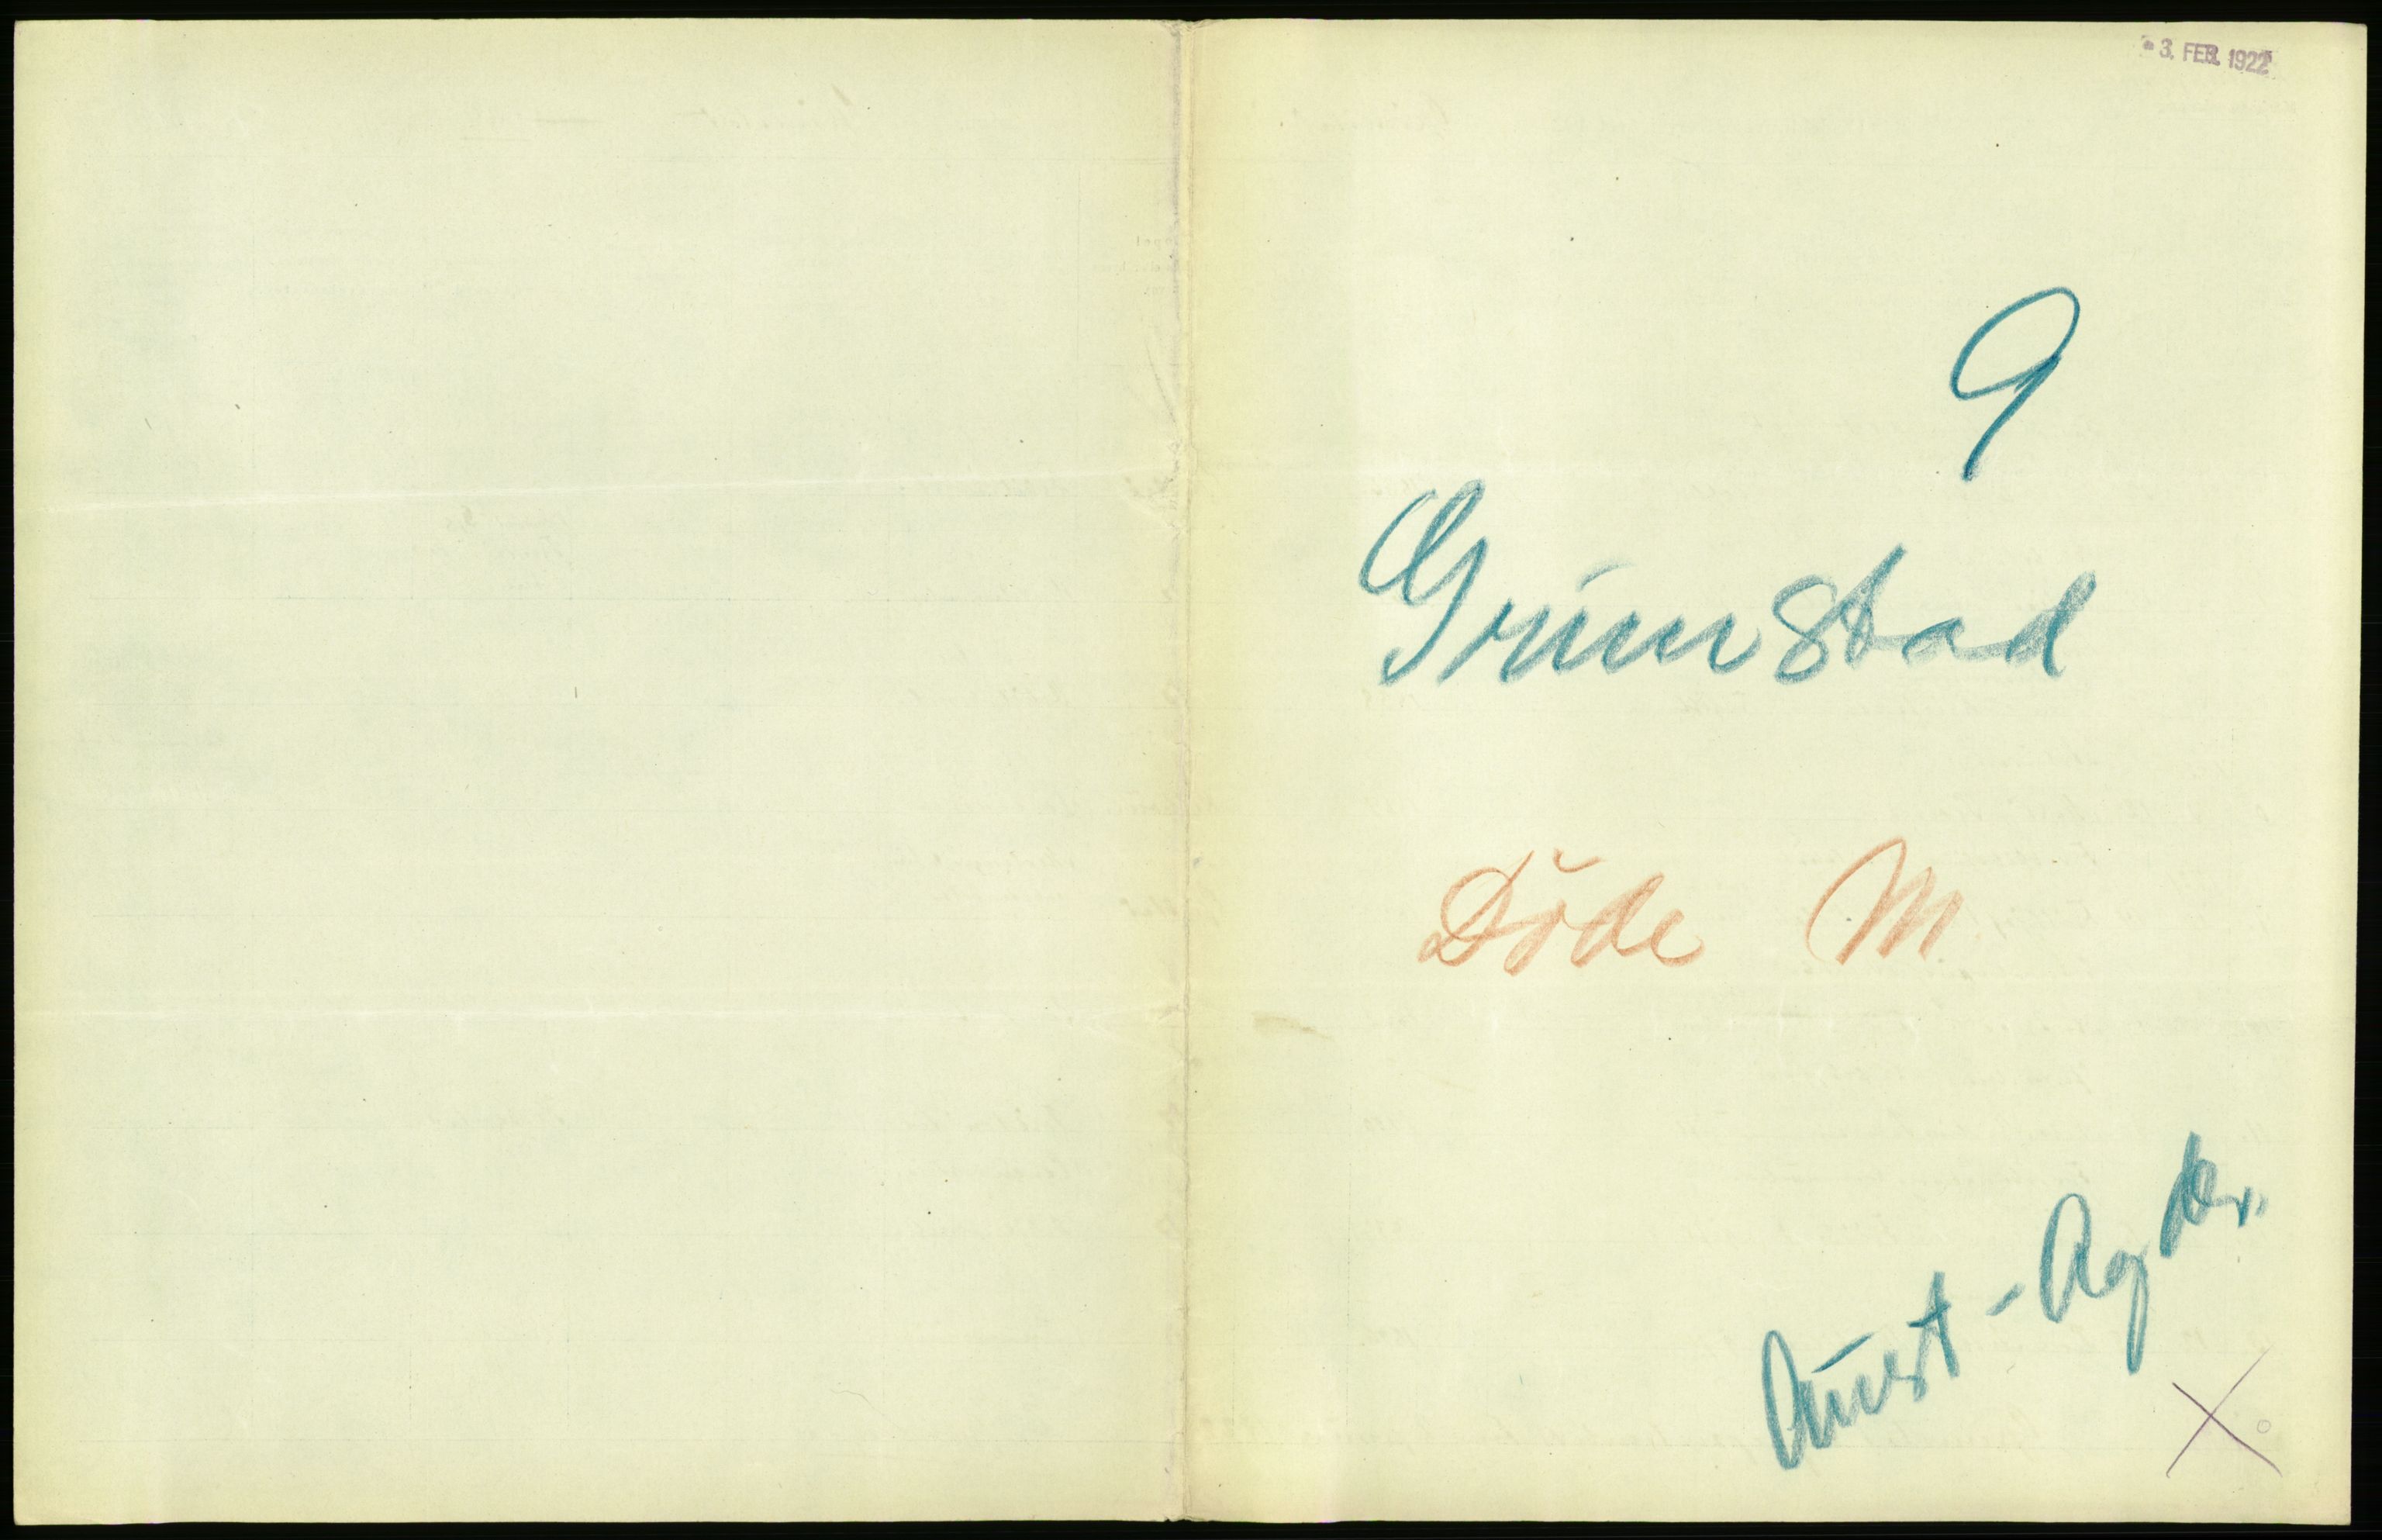 3. FEB. 1922
9
Grimstad
Döde M
Aust-Agder.